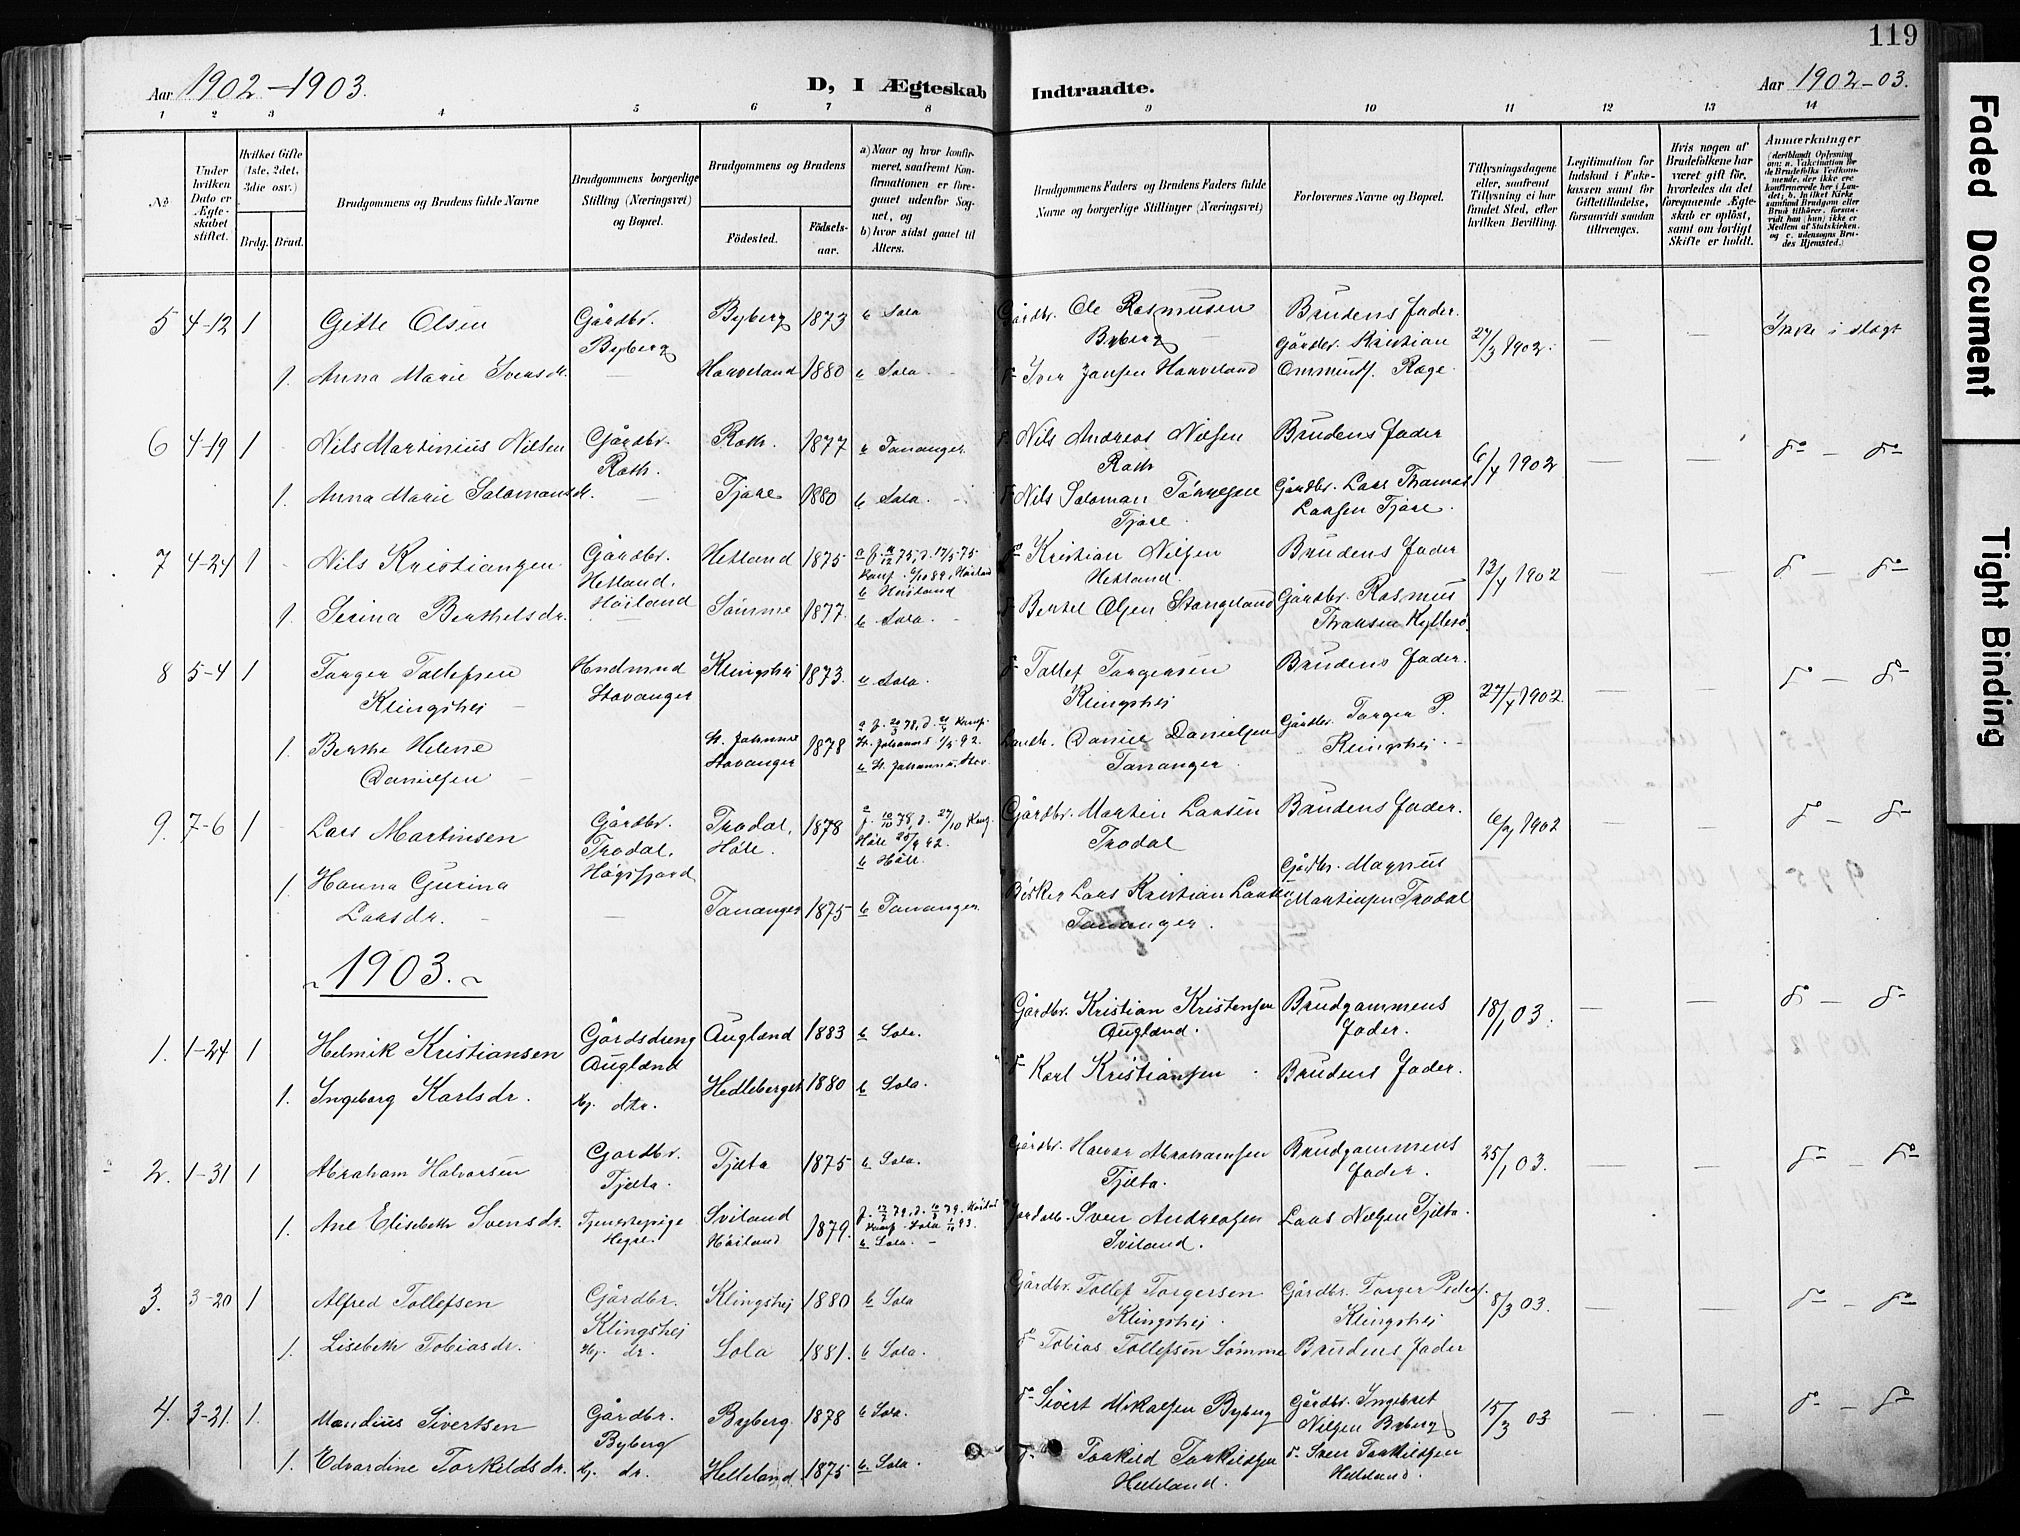 119
Aar 1902-1903.
D, I Ægteskab Indtraadte.
Aar 1902-03.
1 2 3 4 5 6 7 8 9 10 11 12 13 14
No
Under hvilken Dato er Ægteskabet stiftet.
Hvilket Gifte (1ste, 2det, 3die osv.)
Brdg. Brud.
Brudgommens og Brudens fulde Navne
Brudgommens borgerlige Stilling (Næringsvei) og Bopæl.
Brudgommens og Brudens
Födested.
Födselsaar.
a) Naar og hvor konfirmeret, saafremt Konfirmationen er foregaaet udenfor Sognet, og
b) hvor sidst gaaet til Alters.
Brudgommens Faders og Brudens Faders fulde Navne og borgerlige Stillinger (Næringsvei)
Forlovernes Navne og Bopæl.
Tillysningsdagene eller, saafremt Tillysning ei har fundet Sted, efter hvilken Bevilling.
Legitimation for Indskud i Enkekassen samt for Giftetilladelse, forsaavidt saadan tiltrænges.
Hvis nogen af Brudefolkene har været gift för, hvorledes da det foregaaende Ægteskab er oplöst, samt om lovligt Skifte er holdt.
Anmærkninger
5 4-12 1 Gitte Olsen Gårdbr. Byberg Byberg 1873 b Sola Gårdbr. Ole Rasmusen Byberg Brudens Fader. 27/3 1902. — — Ikke i slægt
1. Anna Marie Svensdr. — Haaveland 1880 b Sola. Iver Jansen Haaveland Gårdbr. Kristian Ommunds. Ræge.
6 4-19 1 Nils Martinius Nilsen Gårdbr. Roth. Roth. 1877 b Tananger. Nils Andreas Nilsen Roth Brudens Fader 6/4 1902 — — do — do
1. Anna Marie Salomonsdr. — Tjore 1880 b Sola. Nils Saloman Tönnesen Tjore. Gårdbr. Lars Thomas Larsen Tjore.
7 4-24 1 Nils Kristiansen Gårdbr. Hetland, Høiland Hetland 1875 b Høiland do Kristian Nilsen Hetland. Brudens Fader 13/4 1902 — — do — do
1. Serina Berthelsdr. Sømme 1877. b Sola. Bertel Olsen Stangeland Gårdbr. Rasmus
8 5-4 1 Torger Tollefsen Klingshei Stavanger Klingshei 1873. b Sola. do Tollef Torgersen Klingshei Brudens Fader. 27/4 1902. — — do — do
1. Berthe Helene Danielsen St. Johannes Stavanger 1878 Daniel Danielsen Tananger Gårdbr. Torger P. Klingshei.
9. 7-6 1 Lars Martinsen Gårdbr. Trodal, Høgsfjord Trodal, Høle. 1878 b Høle. Gårdbr. Martin Larsen Trodal Brudens Fader. 1902 — — do — do
1. Hanna Gurina Larsdr. — Tananger 1875 b Tananger. Lars Kristian Larsen Tananger. Gårdbr. Magnus Martinsen Trodal
1903.
1. 1-24 1 Helmik Kristiansen Gårdsdreng Augland Augland 1883 b Sola. Gårdbr. Kristian Kristensen Augland. Brudgommens Fader. 18/1 03. — — do — do
1. Ingeborg Karlsdr. Hj. dtr. Hedleberget 1880 b Sola. do Karl Kristiansen Brudens Fader.
2. 1-31 1 Abraham Halvorsen Gardbr. Tjelta. Tjelta 1875 b Sola. Gårdbr. Halvor Abrahamsen Tjelta. Brudgommens Fader. 25/1 03. — — do — do
1. Ane Elisebeth Svensdr. Tjenestepige Sviland Høiland 1879. b Sola. — Sven Andreasen Sviland. Lars Nilsen Tjelta.
3. 3-20 1 Alfred Tollefsen Gårdbr. Klingshei Klingshei 1880 b Sola Gårdbr. Tollef Torgersen Klingshei. Gårdbr. Torger Peders. Klingshei 8/3 03. — — do — do
1. Lisebeth Tobiasdr. Hj. dr. Sola 1881. b Sola. do Tobias Tollefsen Sömme Brudens Fader
4. 3-21. 1. Mandius Sivertsen Gårdbr. Byberg Byberg 1878 b Sola. do Sivert Mikalsen Byberg Gårdbr. Ingebret Nilsen Byberg 15/3 03 — — do — do
1. Edvardine Torkildsdr. Hj. dr. Helleland. 1875 b Sola. do Torkild Torkildsen Helleland. do. Sven Torkildsen Helleland.
Faded Document
Tight Binding